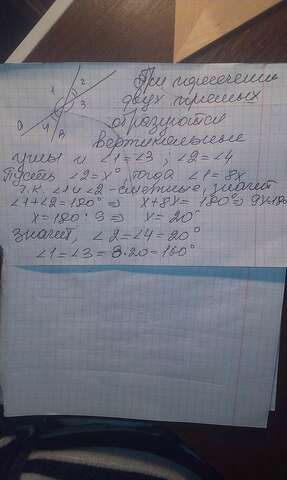 1 2 3 4 a в
При пересечении
двух прямых
образуются
вертикальные
углы и ∠1=∠3; ∠2=∠4
Пусть ∠2=x°, тогда ∠1=8x
т.к. ∠1 и ∠2 - смежные, значит
∠1+∠2=180° ⇒ x+8x=180° ⇒ 9x=180
x=180:9 ⇒ x=20°
Значит, ∠2=∠4=20°
∠1=∠3=8·20=160°